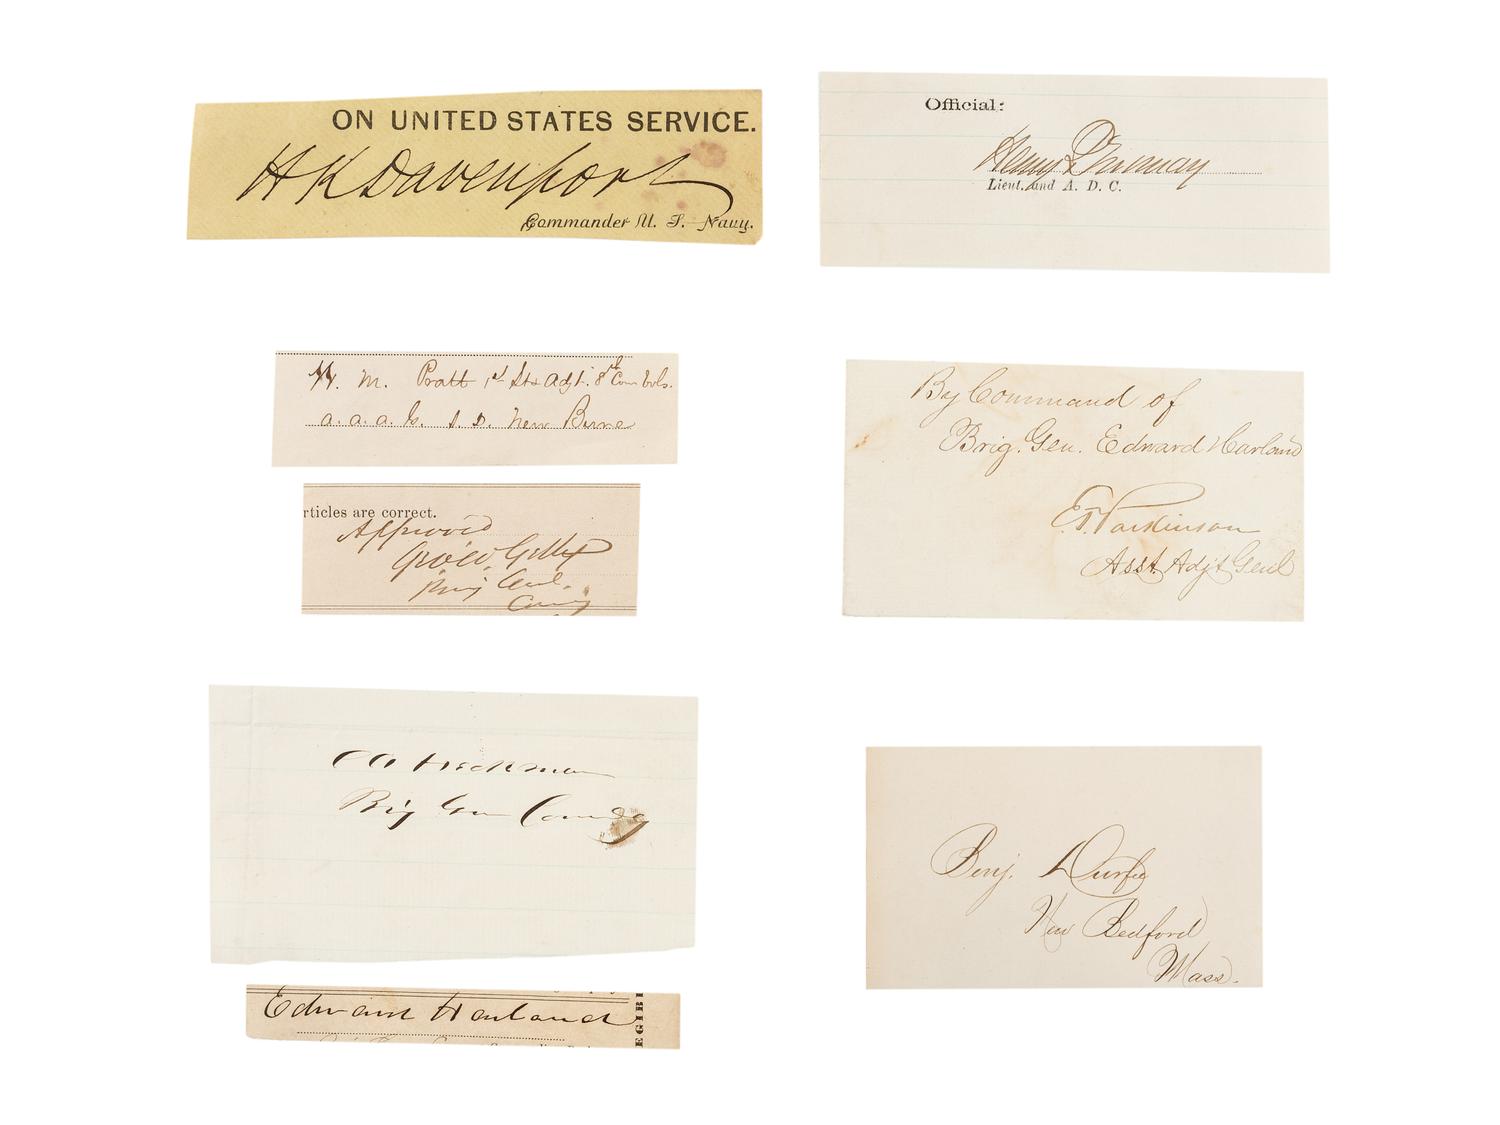 ON UNITED STATES SERVICE.
H K Davenport
Commander U. S. Navy.
Official:
Henry
Lieut. and A. D. C.
W. M. Pratt 1st Lt & Adjt. 8th Con Vols.
a. a. a. G. S. D. New Berne
rticles are correct.
Approved
Brig Genl.
Comg
By Command of
Brig. Gen. Edward Harland
E. T. Parkinson
Asst. Adjt Genl
C A Heckman
Brig Gen Comdg
Benj. Durfee
New Bedford
Mass.
Edward Harland
EGIBL